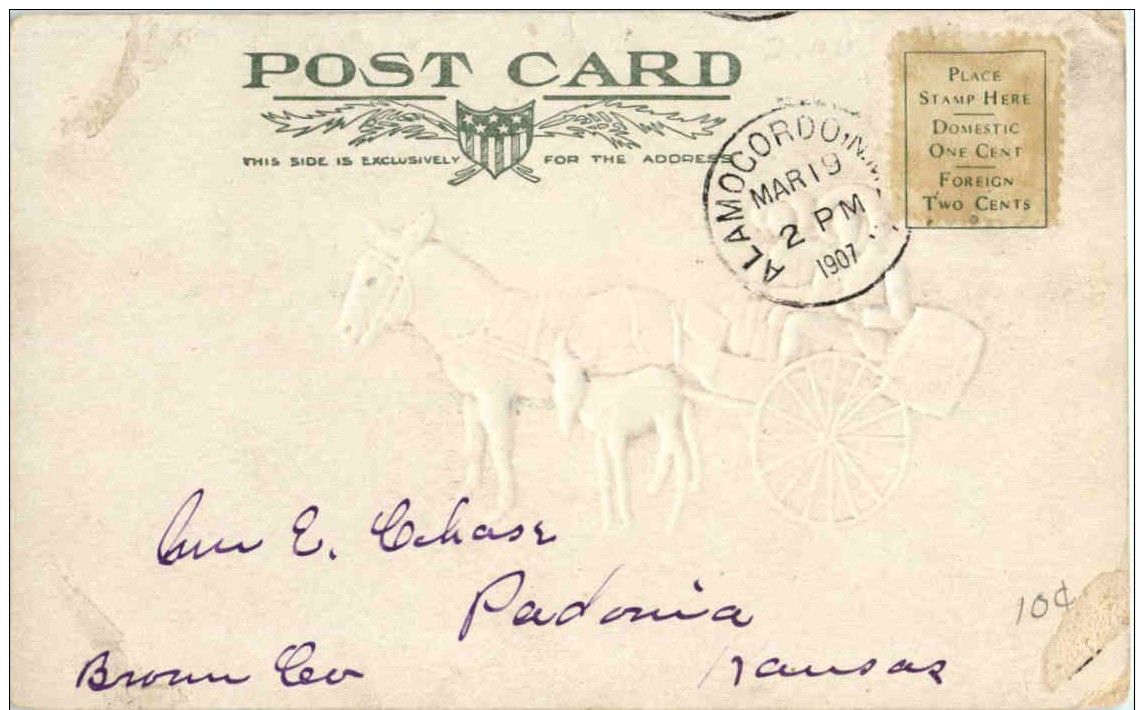 POST CARD
THIS SIDE IS EXCLUSIVELY FOR THE ADDRESS
ALAMOGORDO, N.M.
MAR 19
2 PM
1907
PLACE
STAMP HERE
DOMESTIC
ONE CENT
FOREIGN
TWO CENTS
E. Chase
Padonia
Brown Co Kansas
10¢